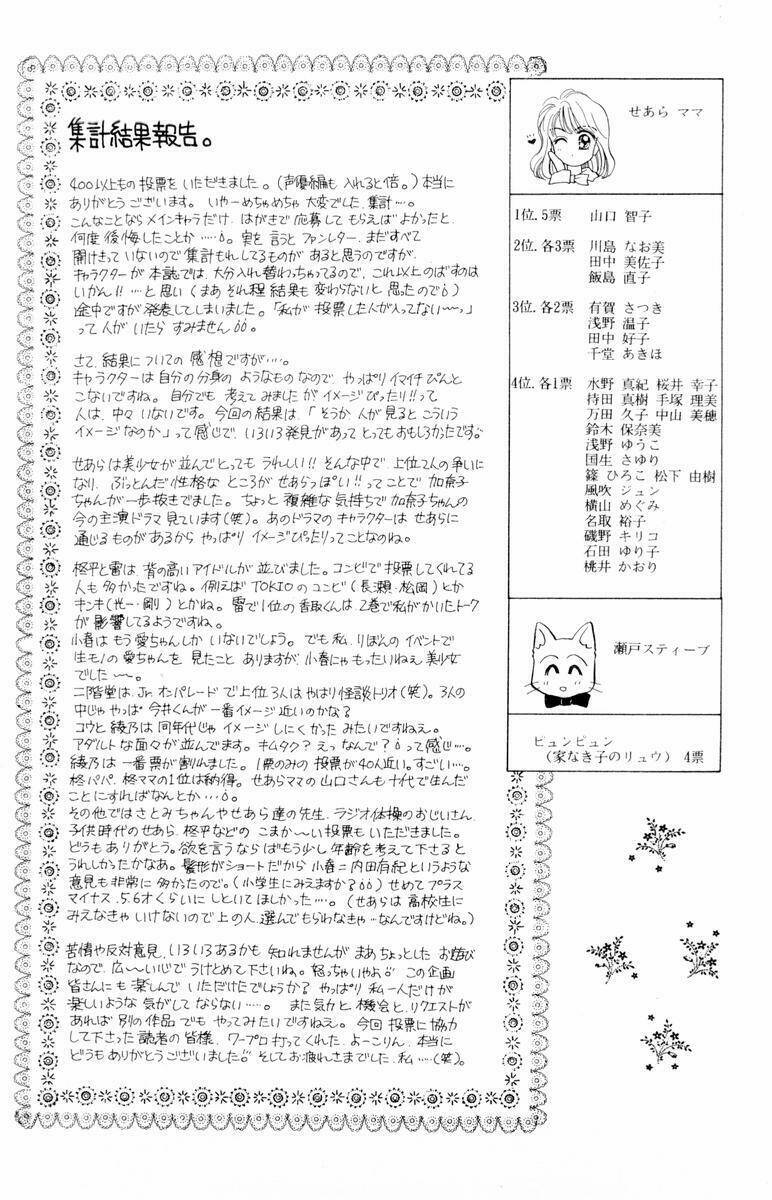 集計結果報告。
400以上もの投票をいただきました。(声優編も入れると倍。)本当に
ありがとうございます。いやーめちゃめちゃ大変でした、集計…。
こんなことならメインキャラだけ、はがきで応募してもらえばよかったと、
何度後悔したことか……。実を言うとファンレター、まだすべて
開けきっていないので集計もれしてるものがあると思うのですが、
キャラクターが本誌では、大分入れ替わっちゃってるので、これ以上のばすのは
いかん!!…と思い(まあそれ程結果も変わらないと思ったので)
途中ですが発表してしまいました。「私が投票した人が入ってない〜っ」
って人がいたらすみません。
さて、結果についての感想ですが…。
キャラクターは自分の分身のようなものなので、やっぱりイマイチぴんと
こないですね。自分でも考えてみましたがイメージぴったり!!って
人は、中々いないです。今回の結果は、「そうか人が見るとこういう
イメージなのか」って感じで、いろいろ発見があってとってもおもしろかったです。
せあらは美少女が並んでとってもうれしい!!そんな中で、上位2人の争いに
なり、ぶっとんだ性格なところがせあらっぽい!!ってことで加奈子
ちゃんが一歩抜きでました。ちょっと複雑な気持ちで加奈子ちゃんの
今の主演ドラマ見ています(笑)。あのドラマのキャラクターはせあらに
通じるものがあるからやっぱりイメージぴったりってことなのね。
柊平と雷は背の高いアイドルが並びました。コンビで投票してくれてる
人も多かったですね。例えばTOKIOのコンビ(長瀬・松岡)とか
キンキ(光一・剛)とかね。雷で1位の香取くんは2巻で私がかいたトーク
が影響してるようですね。
小春はもう愛ちゃんしかいないでしょう。でも私、りぼんのイベントで
生モノの愛ちゃんを見たことありますが、小春にゃもったいねえ美少女
でした〜。
二階堂は、Jr.オンパレードで上位3人はやはり怪談トリオ(笑)。3人の
中じゃやっぱ今井くんが一番イメージ近いのかな?
コウと綾乃は同年代じゃイメージしにくかったみたいですねえ。
アダルトな面々が並んでます。キムタク?えっなんで?って感じ…。
綾乃は一番票が割れました。1票のみの投票が40人近い。すごい…。
柊パパ、柊ママの1位は納得。せあらママの山口さんも十代で生んだ
ことにすればなんとか…。
その他ではさとみちゃんやせあら達の先生、ラジオ体操のおじいさん、
子供時代のせあら、柊平などのこまか〜い投票もいただきました。
どうもありがとう。欲を言うならばもう少し年齢を考えて下さると
うれしかったかなあ。髪形がショートだから小春=内田有紀というような
意見も非常に多かったので。(小学生にみえますか?)せめてプラス
マイナス、5.6才くらいにしといてほしかった…。(せあらは高校生に
みえなきゃいけないので上の人、選んでもらわなきゃ…なんですけどね。)
苦情や反対意見、いろいろあるかも知れませんがまあちょっとしたお遊び
なので、広〜い心でうけとめて下さいね。怒っちゃいやよ この企画
皆さんにも楽しんでいただけたでしょうか?やっぱり私一人だけが
楽しいような気がしてならない……。また気力と機会と、リクエストが
あれば別の作品でもやってみたいですねえ。今回投票に協力
して下さった読者の皆様、ワープロ打ってくれた、よーこりん、本当に
どうもありがとうございました そしてお疲れさまでした、私……(笑)。
せあら ママ
1位.5票 山口 智子
2位.各3票 川島 なお美
田中 美佐子
飯島 直子
3位.各2票 有賀 さつき
浅野 温子
田中 好子
千堂 あきほ
4位.各1票 水野 真紀 桜井 幸子
持田 真樹 手塚 理美
万田 久子 中山 美穂
鈴木 保奈美
浅野 ゆうこ
国生 さゆり
篠 ひろこ 松下 由樹
風吹 ジュン
横山 めぐみ
名取 裕子
磯野 キリコ
石田 ゆり子
桃井 かおり
瀬戸スティーブ
ピュンピュン
(家なき子のリュウ) 4票